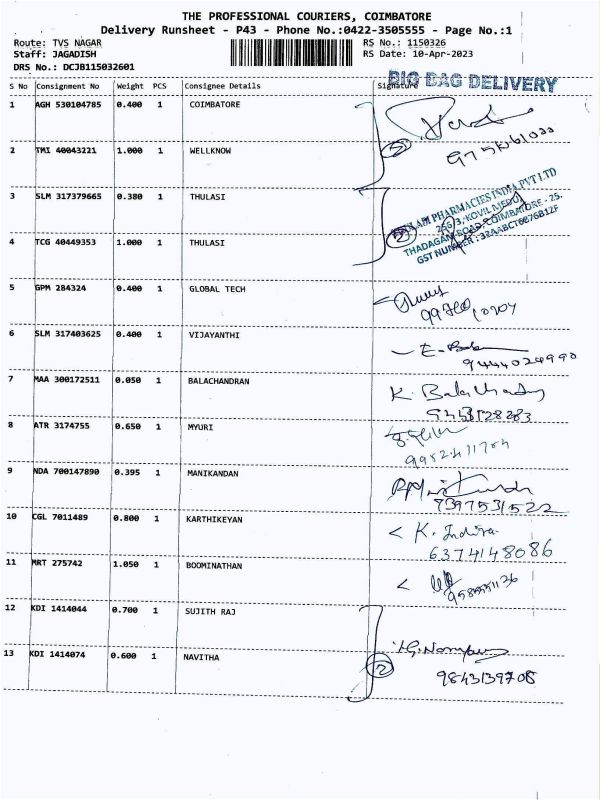 THE PROFESSIONAL COURIERS, COIMBATORE
Delivery Runsheet - P43 - Phone No.:0422-3505555 - Page No.:1
Route: TVS NAGAR RS No.: 1150326
Staff: JAGADISH RS Date: 10-Apr-2023
DRS No.: DCJB115032601
BIG BAG DELIVERY
S No Consignment No Weight PCS Consignee Details Signature
1 AGH 530104785 0.400 1 COIMBATORE
2 TMI 40043221 1.000 1 WELLKNOW
3 SLM 317379665 0.380 1 THULASI
PHARMACIES INDIA PVT LTD
256/3, KOVIL MEDU,
THADAGAM ROAD, COIMBATORE - 25.
GST NUMBER :
4 TCG 40449353 1.000 1 THULASI
2
5 GPM 284324 0.400 1 GLOBAL TECH
6 SLM 317403625 0.400 1 VIJAYANTHI
9444024990
7 MAA 300172511 0.050 1 BALACHANDRAN
K. Balachandran
8 ATR 3174755 0.650 1 MYURI
9 NDA 700147890 0.395 1 MANIKANDAN
9397531522
10 CGL 7011489 0.800 1 KARTHIKEYAN
K. Indira
6374148086
11 MRT 275742 1.050 1 BOOMINATHAN
12 KDI 1414044 0.700 1 SUJITH RAJ
13 KDI 1414074 0.600 1 NAVITHA
2
9843139708